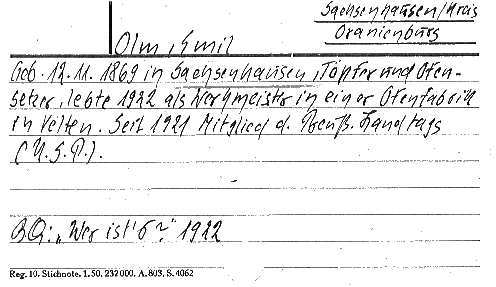 Sachsenhausen/Kreis
Oranienburg
Olm, Emil
Geb. 12.11.1869 in Sachsenhausen, Töpfer und Ofen-
setzer, lebte 1922 als Werkmeister in einer Ofenfabrik
in Velten. Seit 1921 Mitglied d. Preuß. Landtags
(U.S.P.).
BQ: „Wer ist's?" 1922
Reg. 10. Stichnote. 1. 50. 232000. A. 803, S. 4062